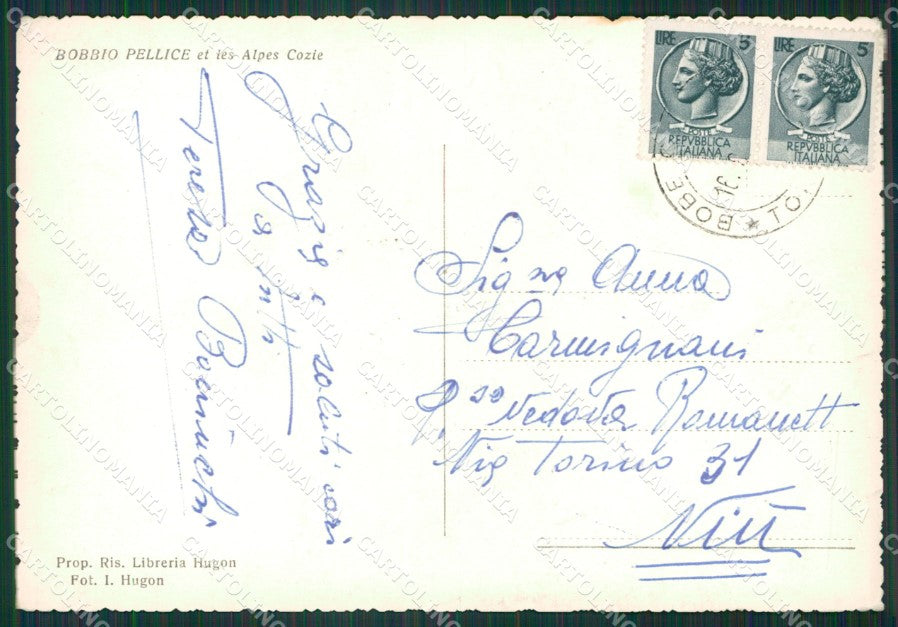 BOBBIO PELLICE et les Alpes Cozie
Grazie e saluti cari
a tutti
LIRE 5
POSTE
REPVBBLICA
ITALIANA
LIRE 5
POSTE
REPVBBLICA
ITALIANA
BOBB
TO
16
Sig.na Anna
Carmignani
Vedova Romanett
Via Torino 31
Prop. Ris. Libreria Hugon
Fot. I. Hugon
CARTOLINOMANIA